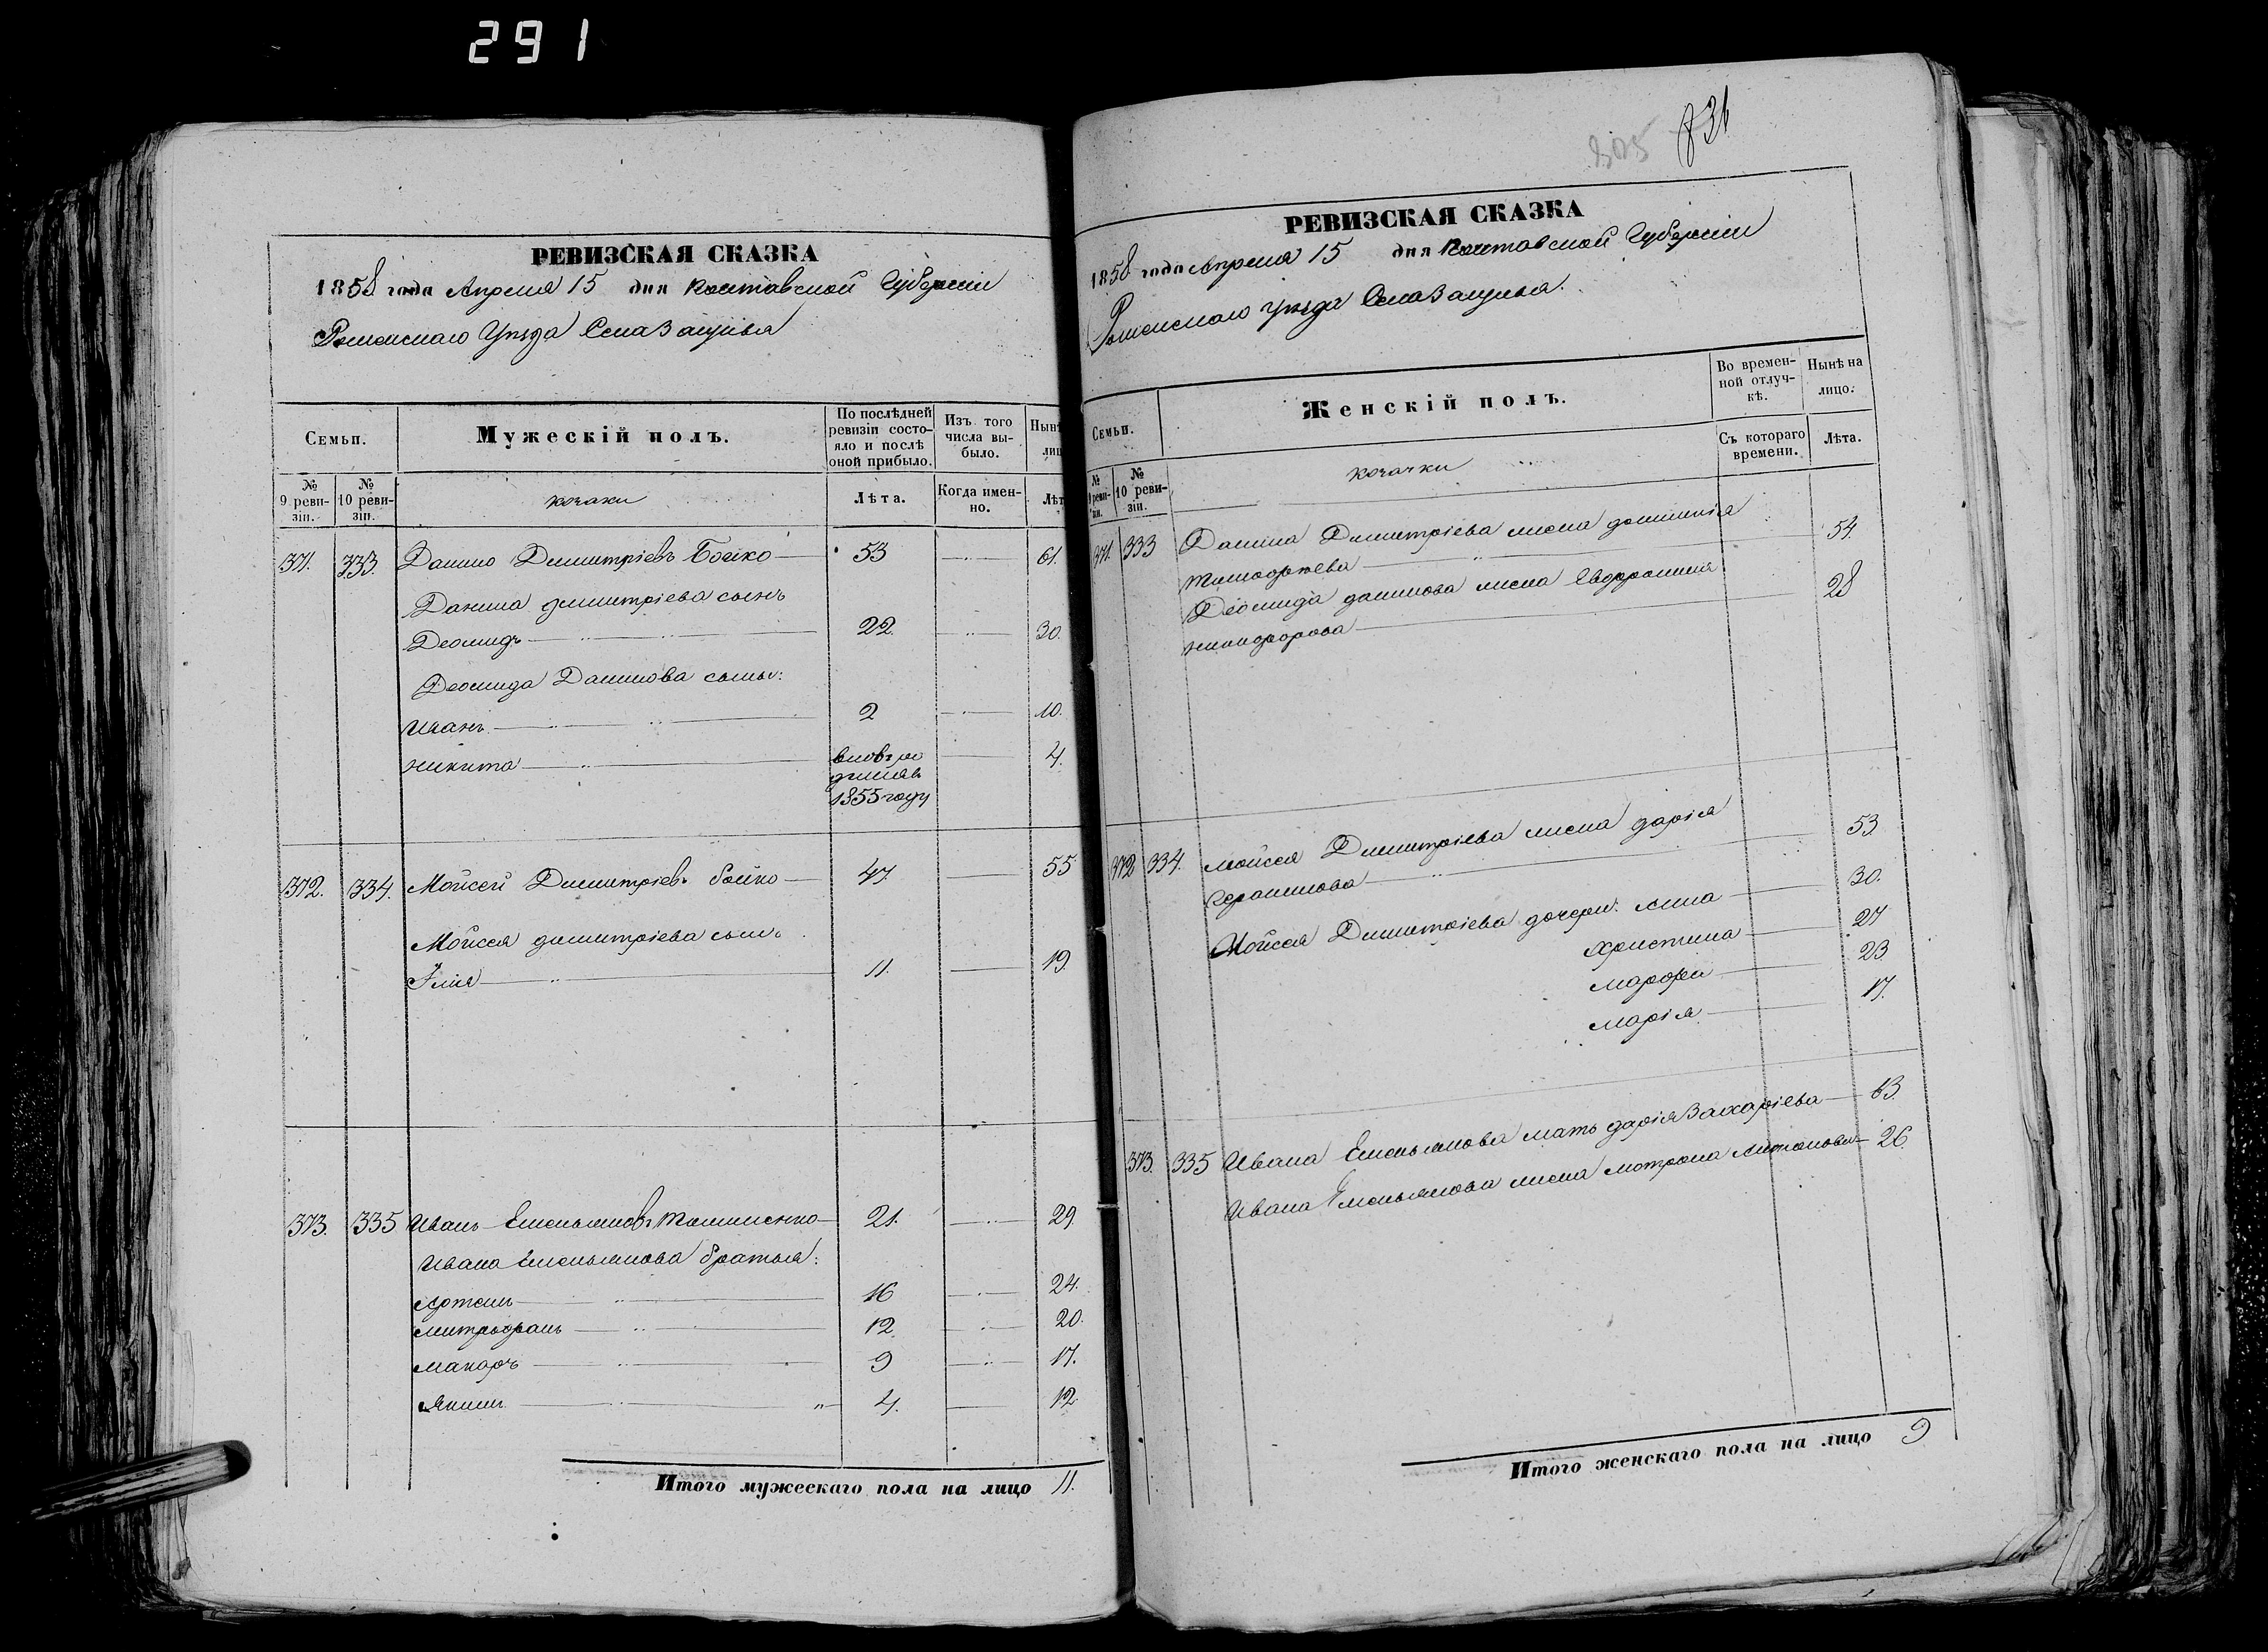 291
РЕВИЗСКАЯ СКАЗКА
1858 года Апреля 15 дня Полтавской Губерніи
Роменскаго Уѣзда Села Зацулья
Семьи.
Мужескій полъ.
По послѣдней ревизіи состояло и послѣ оной прибыло.
Изъ того числа выбыло.
Нынѣ
лиц
№ 9 ревизіи.
№ 10 ревизіи.
козаки
Лѣта.
Когда именно.
Лѣт
371. 333. Данило Димитріевъ Бойко 53 61.
Данила димитріева сынъ
Деомидъ 22. 30.
Деомида Данилова сыны:
Иванъ 2 10.
никита вновь родился в 1855 году 4.
372. 334. Мойсей Димитріевъ бойко 47. 55
Мойсея димитріева сынъ
Илія 11. 19.
373. 335 Иванъ Емельяновъ 21. 29.
Ивана Емельянова братья:
Артемъ 16 24.
митрофанъ 12. 20.
макаръ 9 17.
Якимъ 4. 12.
Итого мужескаго пола на лицо 11.
305 831
РЕВИЗСКАЯ СКАЗКА
1858 года Апреля 15 дня Полтавской Губерніи
Роменскаго уѣзда Села Зацулья.
Семьи.
Женскій полъ.
Во временной отлучкѣ.
Нынѣ на лицо.
№ 9 ревизіи.
№ 10 ревизіи.
козачки
Съ котораго времени.
Лѣта.
371. 333 Данила Димитріева жена домникія
тимофѣева 54.
Деомида данилова жена Евфросинія
никифорова 28
372 334. мойсея Димитріева жена дарія
Герасимова 53.
Мойсея Димитріева дочери: анна 30.
христина 27
марфа 23
марія 17.
373. 335 Ивана Емельянова мать дарія Захаріева 63.
Ивана Емельянова жена мотрона Антонова 26.
Итого женскаго пола на лицо 9